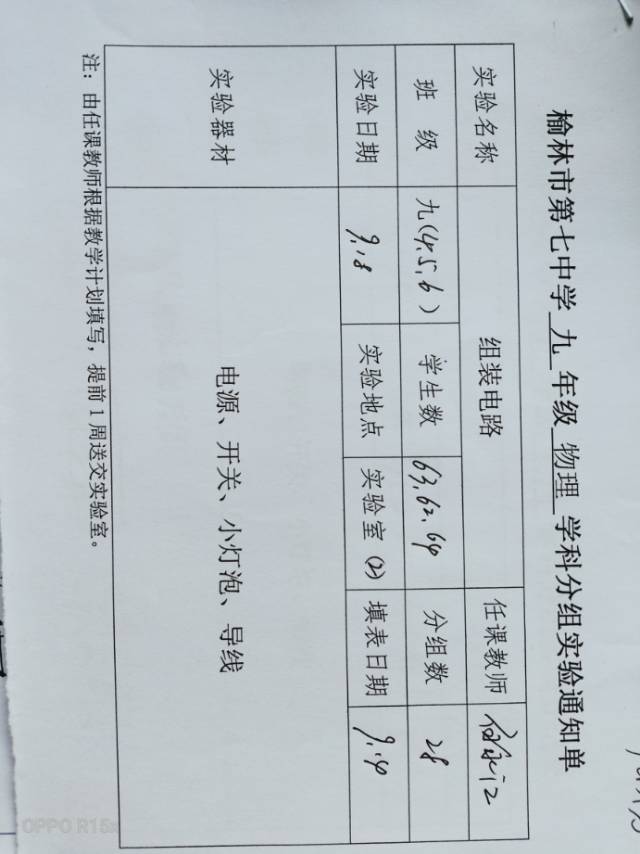 榆林市第七中学 九 年级 物理 学科分组实验通知单
实验名称 组装电路 任课教师
班 级 九(4.5.6) 学生数 63.62.64 分组数 28
实验日期 9.18 实验地点 实验室(2) 填表日期 9.14
实验器材 电源、开关、小灯泡、导线
注：由任课教师根据教学计划填写，提前1周送交实验室。
OPPO R15x